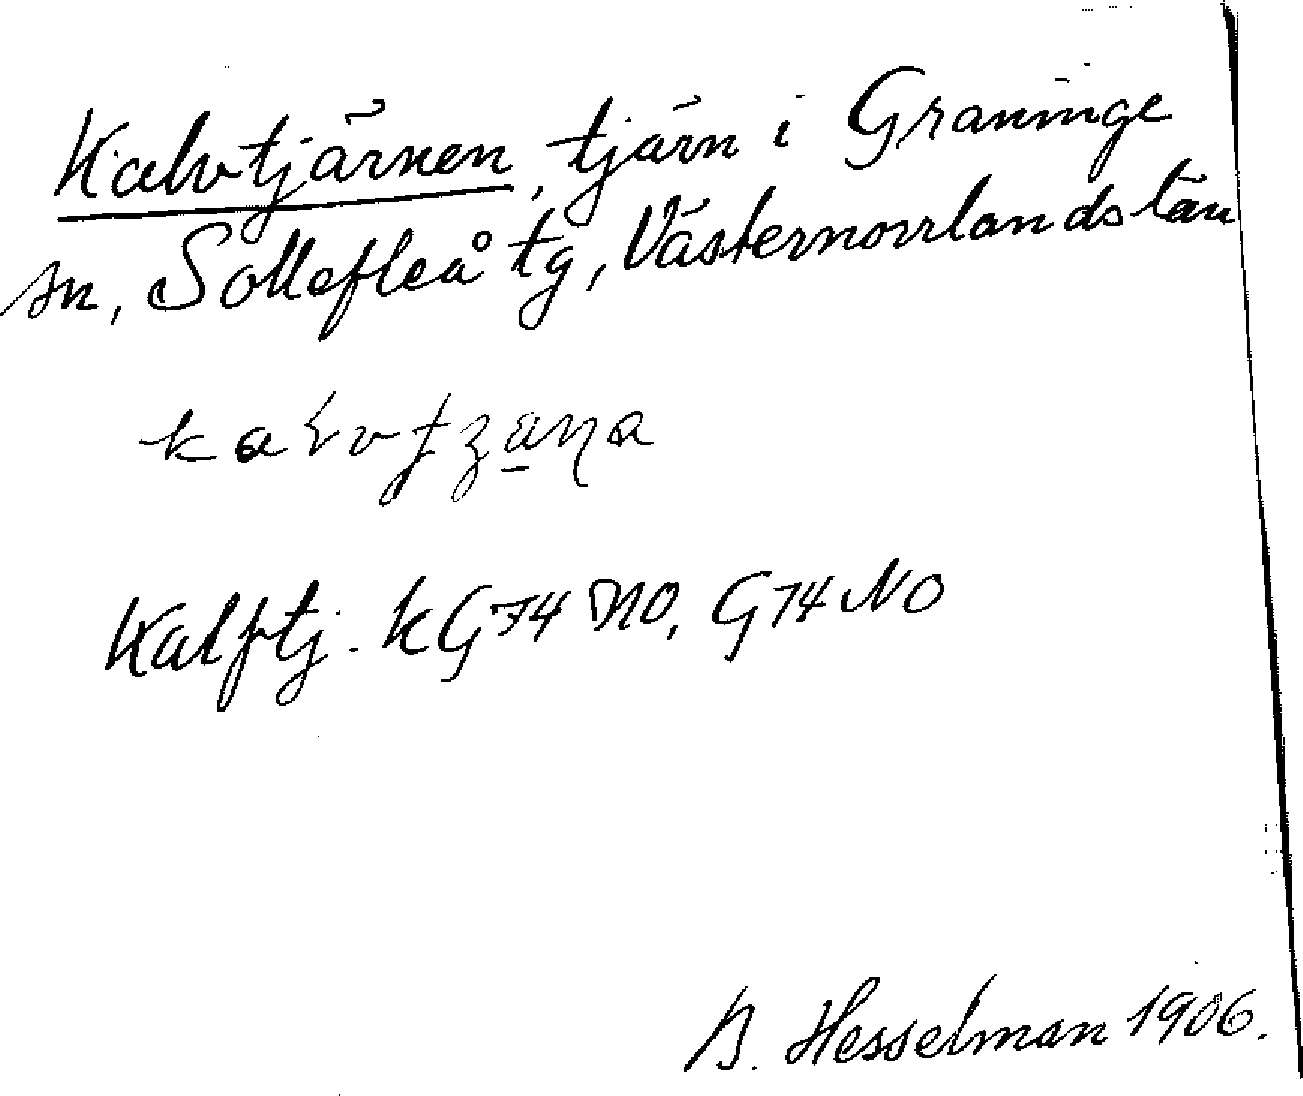 Kalvtjärnen, tjärn i Graninge
sn, Sollefteå tg, Västernorrlands län
Kalftj. kG74 NO, G74 NO
B. Hesselman 1906.